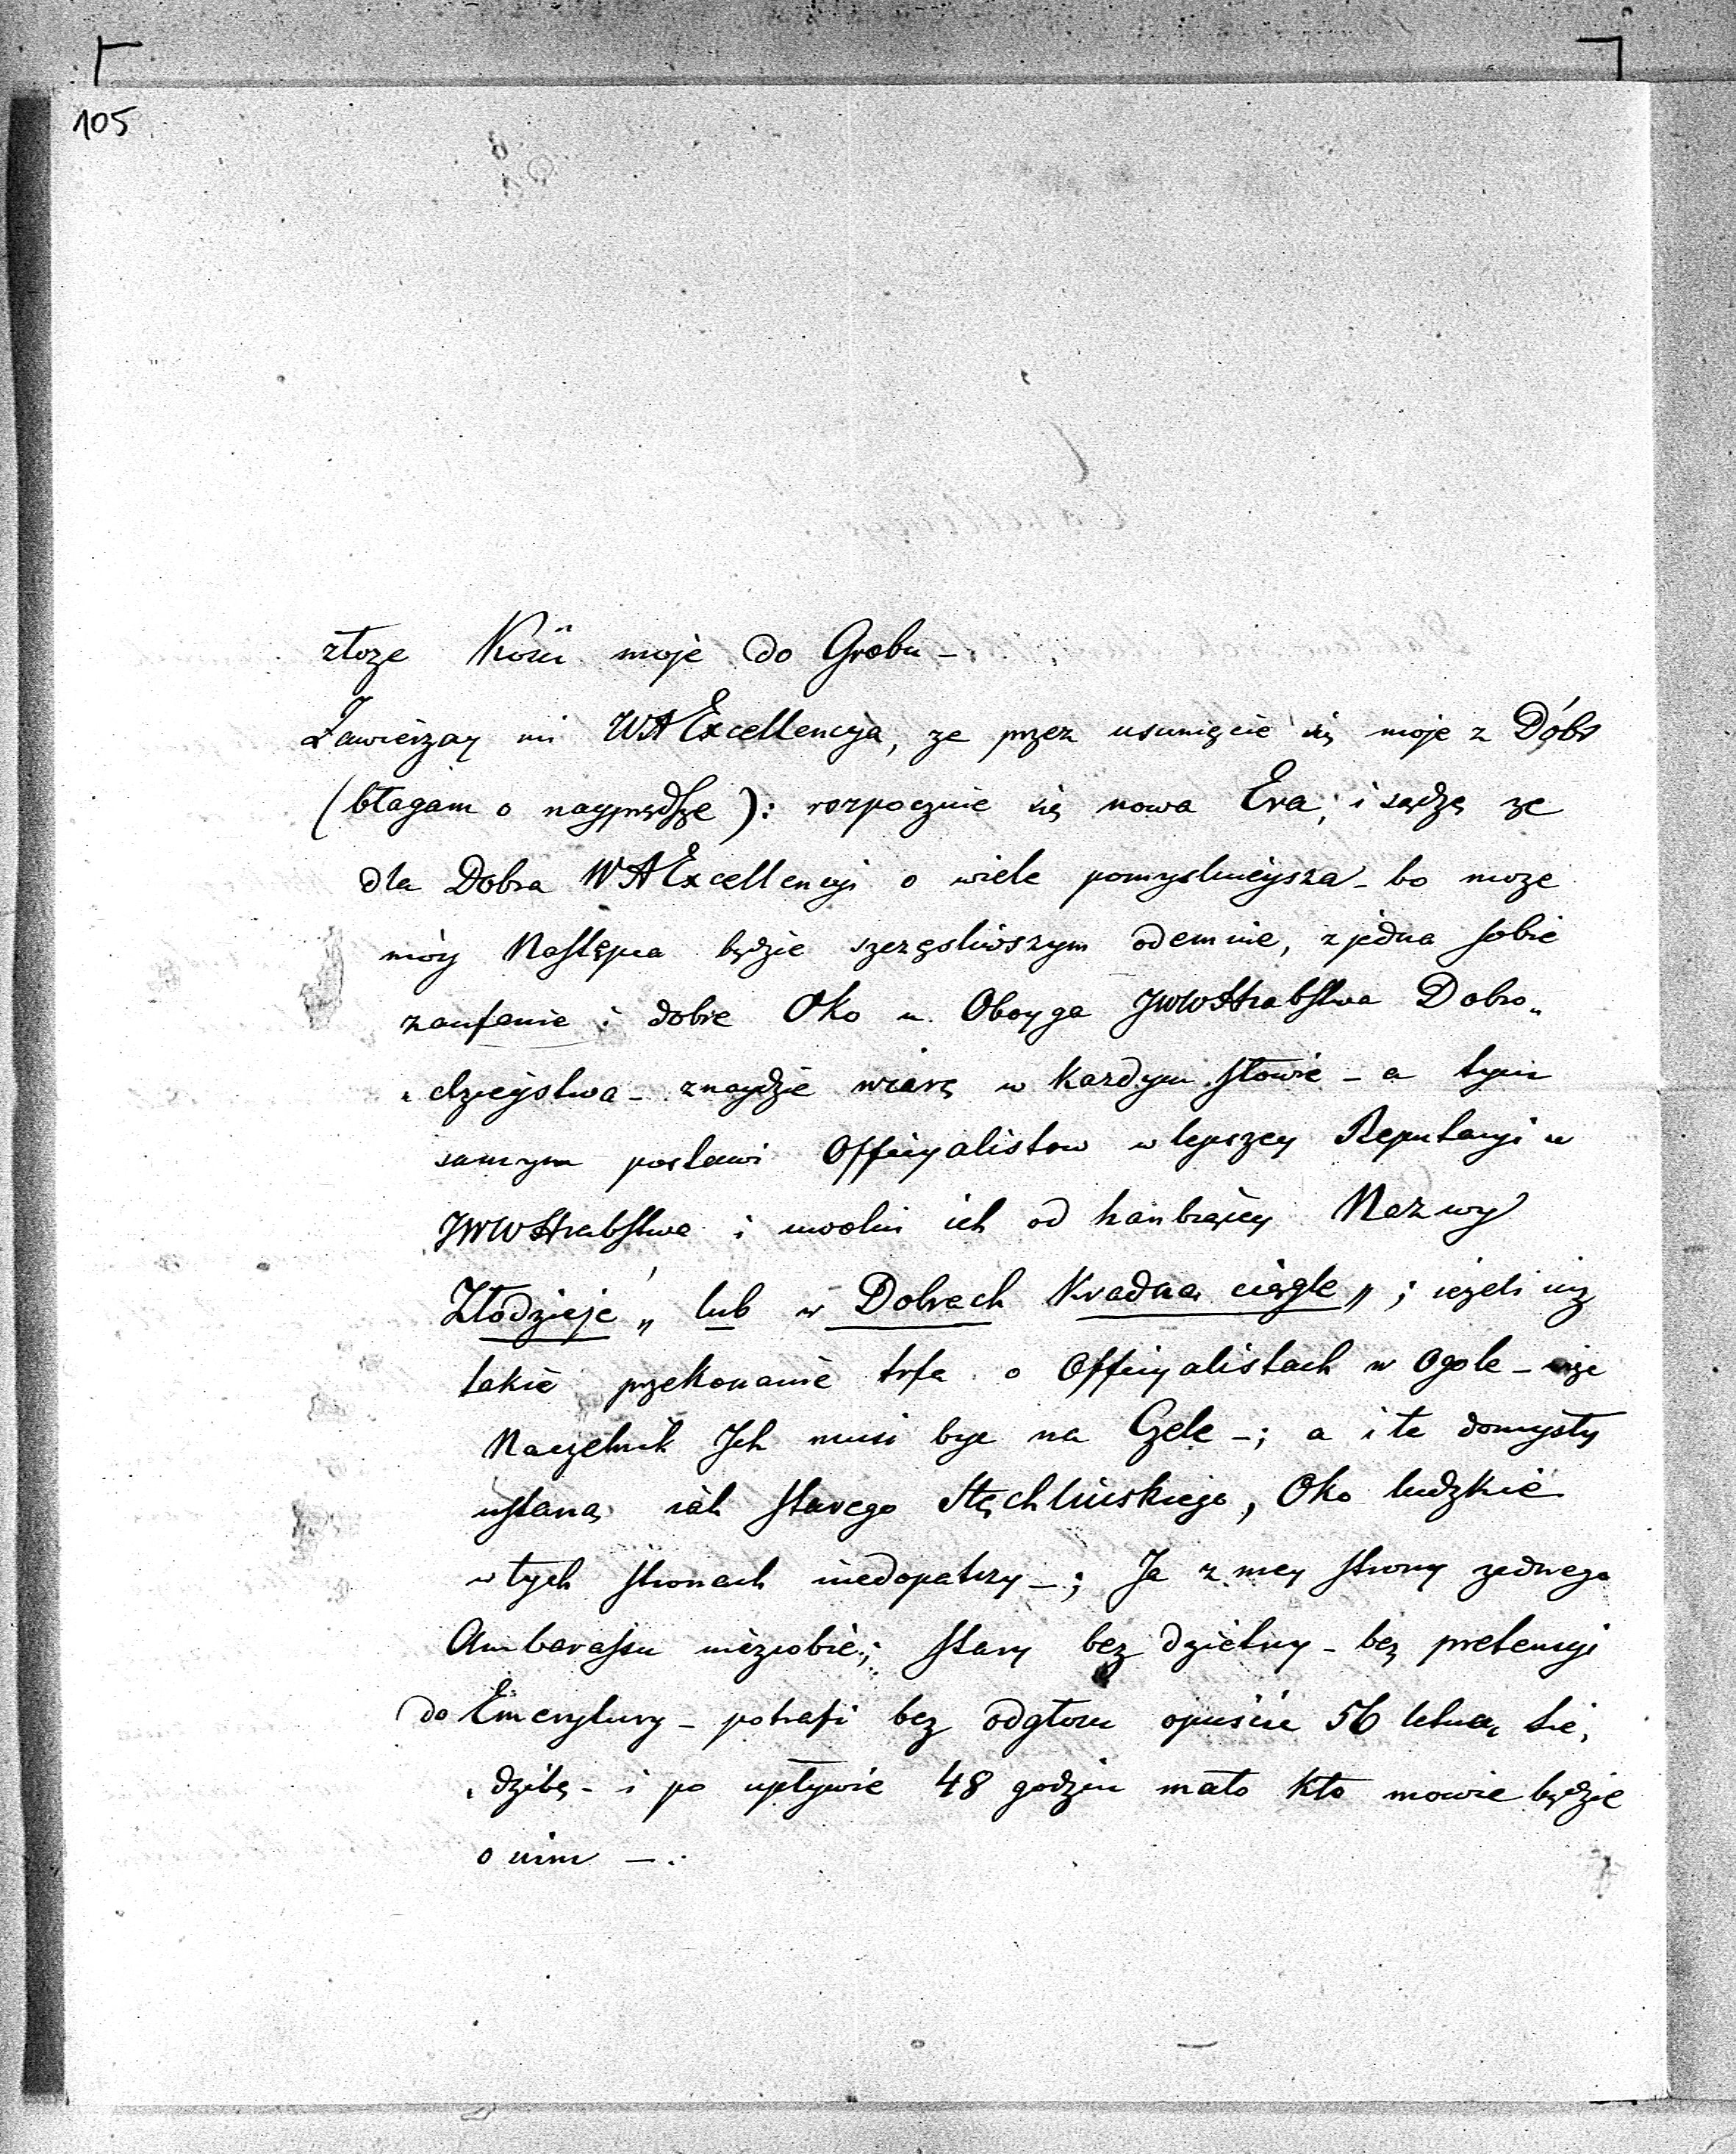 105
złoze Kości moje do Grobu –
Zawierzay mi WAExcellencyja, ze przez usunięcie się moje z Dóbr
(błagam o nayprędsze): rozpocznie się nowa Era; i sądzę ze
dla Dobra WAExcellencyi o wiele pomyslnieysza – bo moze
móy Następca będzie szczęsliwszym odemnie, zjedna sobie
zaufanie i dobre Oko u Oboyga JWWHrabstwa Dobro„
„dzieystwa – znaydzie wiarę w kazdym słowie – a tym
samym postawi Officyalistow w lepszey Reputacyi u
JWWHrabstwa i uwolni ich od hanbiącey Nazwy
Złodzieje„ lub w Dobrach Kradną ciągle„; iezeli iuz
takie przekonanie trfa o Officyalistach w Ogole –
Naczelnik Ich musi byc na Czele –; a i te domysły
ustaną iak starego Stęchlinskiego, Oko ludzkie
w tych stronach niedopatrzy –; Ja z mey strony zednego
Ambarassu niezrobie; stary bezdzietny – bez pretensyi
do Emerytury – potrafi bez odgłosu opuscić 56 letnią sie„
„dzibę – i po upływie 48 godzin mało kto mowic będzie
o nim –.